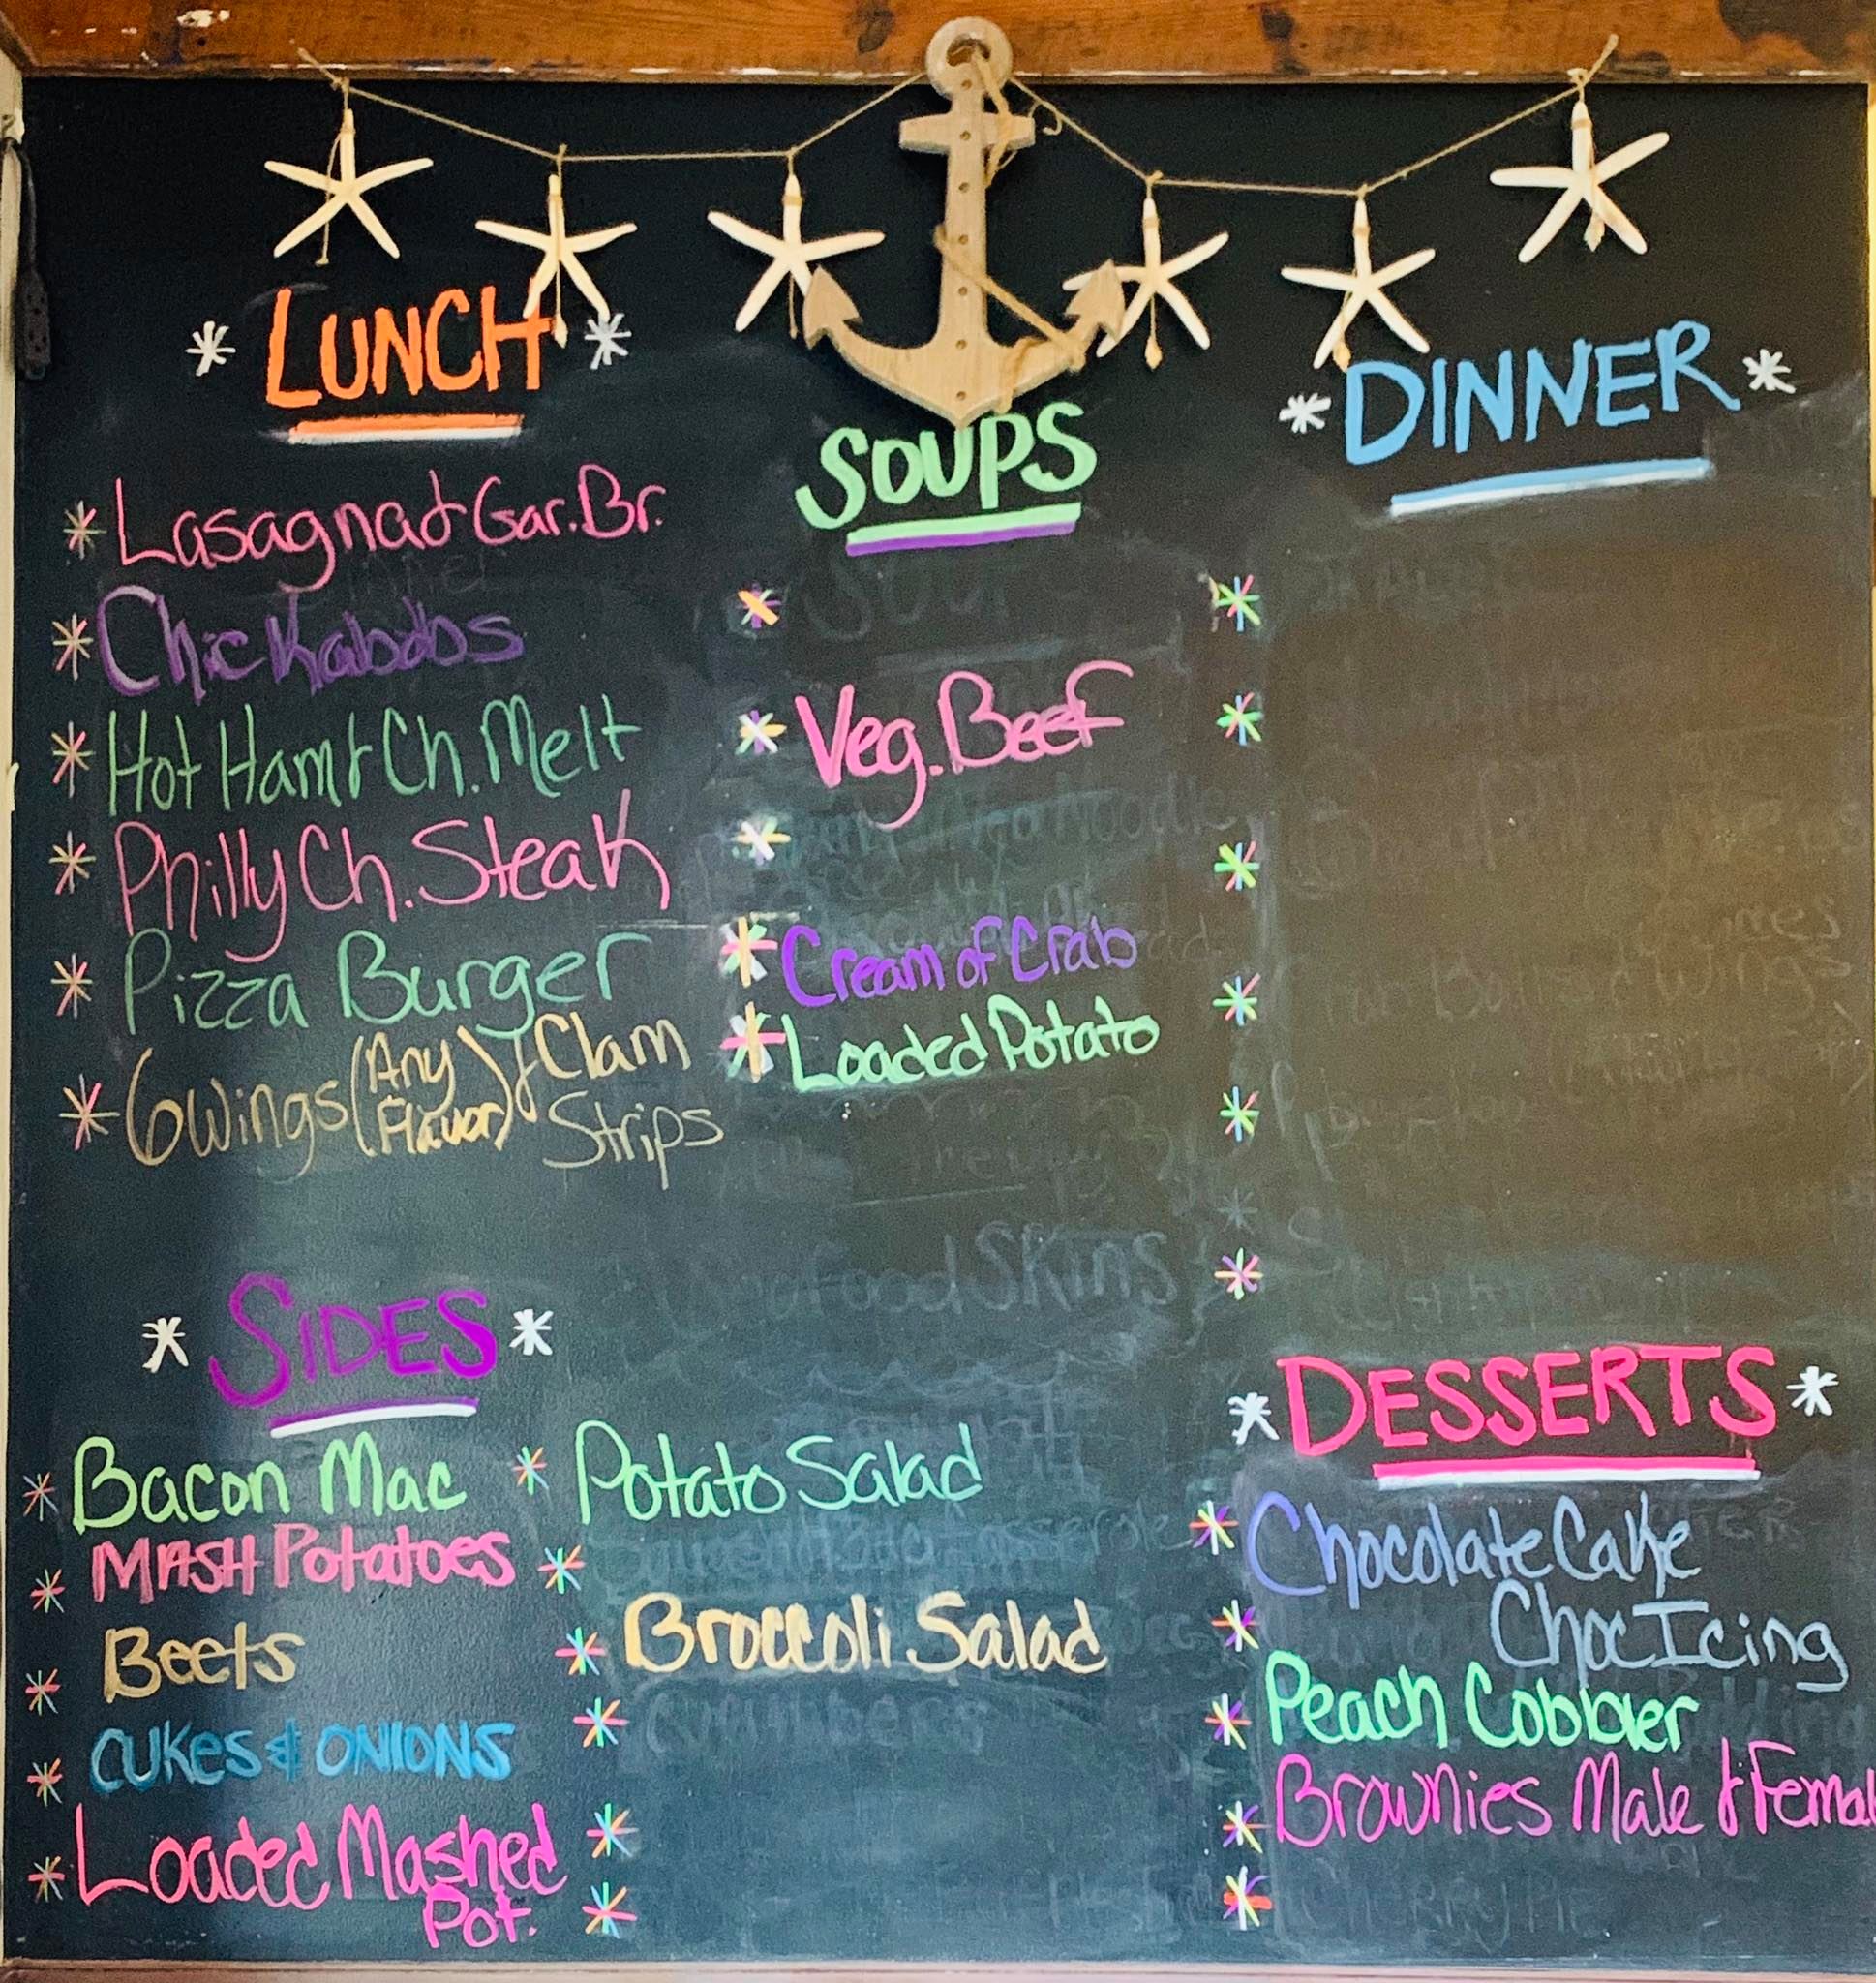 LUNCH
Lasagna & Gar. Br.
Chic Kabobs
Hot Ham & Ch. Melt
Philly Ch. Steak
Pizza Burger
6 Wings (Any Flavor) & Clam
Strips
SOUPS
Veg. Beef
Cream of Crab
Loaded Potato
DINNER
SIDES
Bacon Mac
MASH Potatoes
Beets
CUKES & ONIONS
Loaded Mashed
Pot.
Potato Salad
Broccoli Salad
DESSERTS
Chocolate Cake
Choc Icing
Peach Cobbler
Brownies Male & Femal